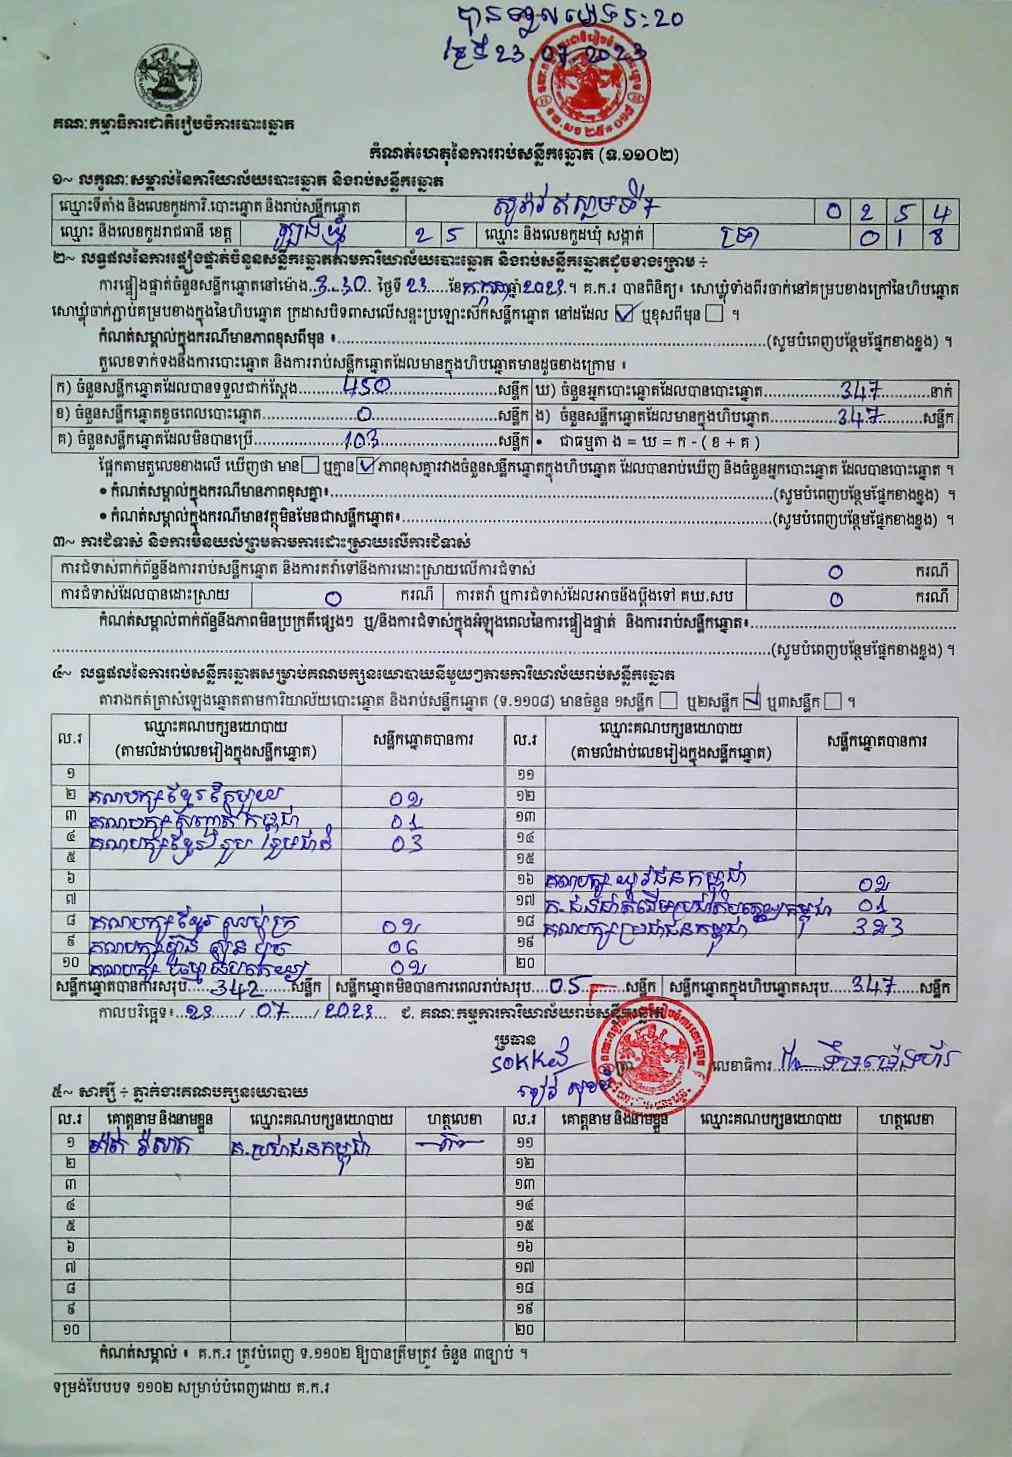 បានទទួលម៉ោង 5:20
ថ្ងៃទី 23.07.2023
គណៈកម្មាធិការជាតិរៀបចំការបោះឆ្នោត
កំណត់ហេតុនៃការរាប់សន្លឹកឆ្នោត (ទ.១១០២)
១~ លក្ខណៈសម្គាល់នៃការិយាល័យបោះឆ្នោត និងរាប់សន្លឹកឆ្នោត
ឈ្មោះទីតាំង និងលេខកូដការិ.បោះឆ្នោត និងរាប់សន្លឹកឆ្នោត 0 2 5 4
ឈ្មោះ និងលេខកូដរាជធានី ខេត្ត ត្បូងឃ្មុំ 2 5 ឈ្មោះ និងលេខកូដឃុំ សង្កាត់ ទ្រា 0 1 8
២~ លទ្ធផលនៃការផ្ទៀងផ្ទាត់ចំនួនសន្លឹកឆ្នោតតាមការិយាល័យបោះឆ្នោត និងរាប់សន្លឹកឆ្នោតដូចខាងក្រោម ÷
ការផ្ទៀងផ្ទាត់ចំនួនសន្លឹកឆ្នោតនៅម៉ោង..3:30.. ថ្ងៃទី 23.....ខែកក្កដាឆ្នាំ2023.។ គ.ក.រ បានពិនិត្យ៖ សោឃ្លុំទាំងពីរចាក់នៅគម្របខាងក្រៅនៃហិបឆ្នោត
សោឃ្លុំចាក់ភ្ជាប់គម្របខាងក្នុងនៃហិបឆ្នោត ក្រដាសបិទពាសលើសន្ទះប្រឡោះសឹកសន្លឹកឆ្នោត នៅដដែល ☑ ឬខុសពីមុន ☐ ។
កំណត់សម្គាល់ក្នុងករណីមានភាពខុសពីមុន ៖..........(សូមបំពេញបន្ថែមផ្នែកខាងខ្នង) ។
តួលេខទាក់ទងនឹងការបោះឆ្នោត និងការរាប់សន្លឹកឆ្នោតដែលមានក្នុងហិបឆ្នោតមានដូចខាងក្រោម ៖
ក) ចំនួនសន្លឹកឆ្នោតដែលបានទទួលជាក់ស្ដែង..........450..........សន្លឹក ឃ) ចំនួនអ្នកបោះឆ្នោតដែលបានបោះឆ្នោត..........347..........នាក់
ខ) ចំនួនសន្លឹកឆ្នោតខូចពេលបោះឆ្នោត..........0..........សន្លឹក ង) ចំនួនសន្លឹកឆ្នោតដែលមានក្នុងហិបឆ្នោត..........347..........សន្លឹក
គ) ចំនួនសន្លឹកឆ្នោតដែលមិនបានប្រើ..........103..........សន្លឹក • ជាធម្មតា ង = ឃ = ក - ( ខ + គ )
ផ្អែកតាមតួលេខខាងលើ ឃើញថា មាន ☐ ឬគ្មាន ☑ ភាពខុសគ្នារវាងចំនួនសន្លឹកឆ្នោតក្នុងហិបឆ្នោត ដែលបានរាប់ឃើញ និងចំនួនអ្នកបោះឆ្នោត ដែលបានបោះឆ្នោត ។
• កំណត់សម្គាល់ក្នុងករណីមានភាពខុសគ្នា៖..........(សូមបំពេញបន្ថែមផ្នែកខាងខ្នង) ។
• កំណត់សម្គាល់ក្នុងករណីមានវត្ថុមិនមែនជាសន្លឹកឆ្នោត៖..........(សូមបំពេញបន្ថែមផ្នែកខាងខ្នង) ។
៣~ ការជំទាស់ និងការមិនយល់ព្រមតាមការដោះស្រាយលើការជំទាស់
ការជំទាស់ពាក់ព័ន្ធនឹងការរាប់សន្លឹកឆ្នោត និងការតវ៉ាទៅនឹងការដោះស្រាយលើការជំទាស់ 0 ករណី
ការជំទាស់ដែលបានដោះស្រាយ 0 ករណី ការតវ៉ា ឬការជំទាស់ដែលអាចនឹងប្ដឹងទៅ គឃ.សប 0 ករណី
កំណត់សម្គាល់ពាក់ព័ន្ធនឹងភាពមិនប្រក្រតីផ្សេងៗ ឬ/និងការជំទាស់ក្នុងអំឡុងពេលនៃការផ្ទៀងផ្ទាត់ និងការរាប់សន្លឹកឆ្នោត៖..........
..........(សូមបំពេញបន្ថែមផ្នែកខាងខ្នង) ។
៤~ លទ្ធផលនៃការរាប់សន្លឹកឆ្នោតសម្រាប់គណបក្សនយោបាយនីមួយៗតាមការិយាល័យរាប់សន្លឹកឆ្នោត
តារាងកត់ត្រាសំឡេងឆ្នោតតាមការិយាល័យបោះឆ្នោត និងរាប់សន្លឹកឆ្នោត (ទ.១១០៨) មានចំនួន ១សន្លឹក ☐ ឬ២សន្លឹក ☑ ឬ៣សន្លឹក ☐ ។
ល.រ ឈ្មោះគណបក្សនយោបាយ (តាមលំដាប់លេខរៀងក្នុងសន្លឹកឆ្នោត) សន្លឹកឆ្នោតបានការ ល.រ ឈ្មោះគណបក្សនយោបាយ (តាមលំដាប់លេខរៀងក្នុងសន្លឹកឆ្នោត) សន្លឹកឆ្នោតបានការ
១ ១១
២ គណបក្សខ្មែរ 02 ១២
៣ គណបក្ស កម្ពុជា 01 ១៣
៤ គណបក្សខ្មែររួបរួមជាតិ 03 ១៤
៥ ១៥
៦ ១៦ គណបក្សយុវជនកម្ពុជា 02
៧ ១៧ គ.ជនជាតិដើមប្រជាធិបតេយ្យកម្ពុជា 01
៨ គណបក្សខ្មែរ 02 ១៨ គណបក្សប្រជាជនកម្ពុជា 323
៩ គណបក្សហ៊្វុនស៊ិនប៉ិច 06 ១៩
១០ គណបក្សធម្មាធិបតេយ្យ 02 ២០
សន្លឹកឆ្នោតបានការសរុប.....342.....សន្លឹក សន្លឹកឆ្នោតមិនបានការពេលរាប់សរុប....05.....សន្លឹក សន្លឹកឆ្នោតក្នុងហិបឆ្នោតសរុប.....347.....សន្លឹក
កាលបរិច្ឆេទ៖...23....../...07....../ 2023... ជ. គណៈកម្មការការិយាល័យរាប់សន្លឹកឆ្នោត
ប្រធាន
លេខាធិការ
៥~ សាក្សី ÷ ភ្នាក់ងារគណបក្សនយោបាយ
ល.រ គោត្តនាម និងនាមខ្លួន ឈ្មោះគណបក្សនយោបាយ ហត្ថលេខា ល.រ គោត្តនាម និងនាមខ្លួន ឈ្មោះគណបក្សនយោបាយ ហត្ថលេខា
១ គ.ប្រជាជនកម្ពុជា ១១
២ ១២
៣ ១៣
៤ ១៤
៥ ១៥
៦ ១៦
៧ ១៧
៨ ១៨
៩ ១៩
១០ ២០
កំណត់សម្គាល់ ៖ គ.ក.រ ត្រូវបំពេញ ទ.១១០២ ឱ្យបានត្រឹមត្រូវ ចំនួន ៣ច្បាប់ ។
ទម្រង់បែបបទ ១១០២ សម្រាប់បំពេញដោយ គ.ក.រ